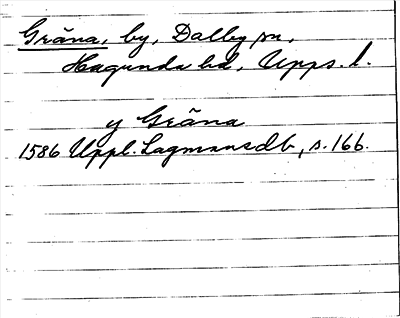 Gräna, by, Dalby sn,
Hagunda hd, Upps. l.
y Gräna
1586 Uppl. Lagmansdb, s. 166.